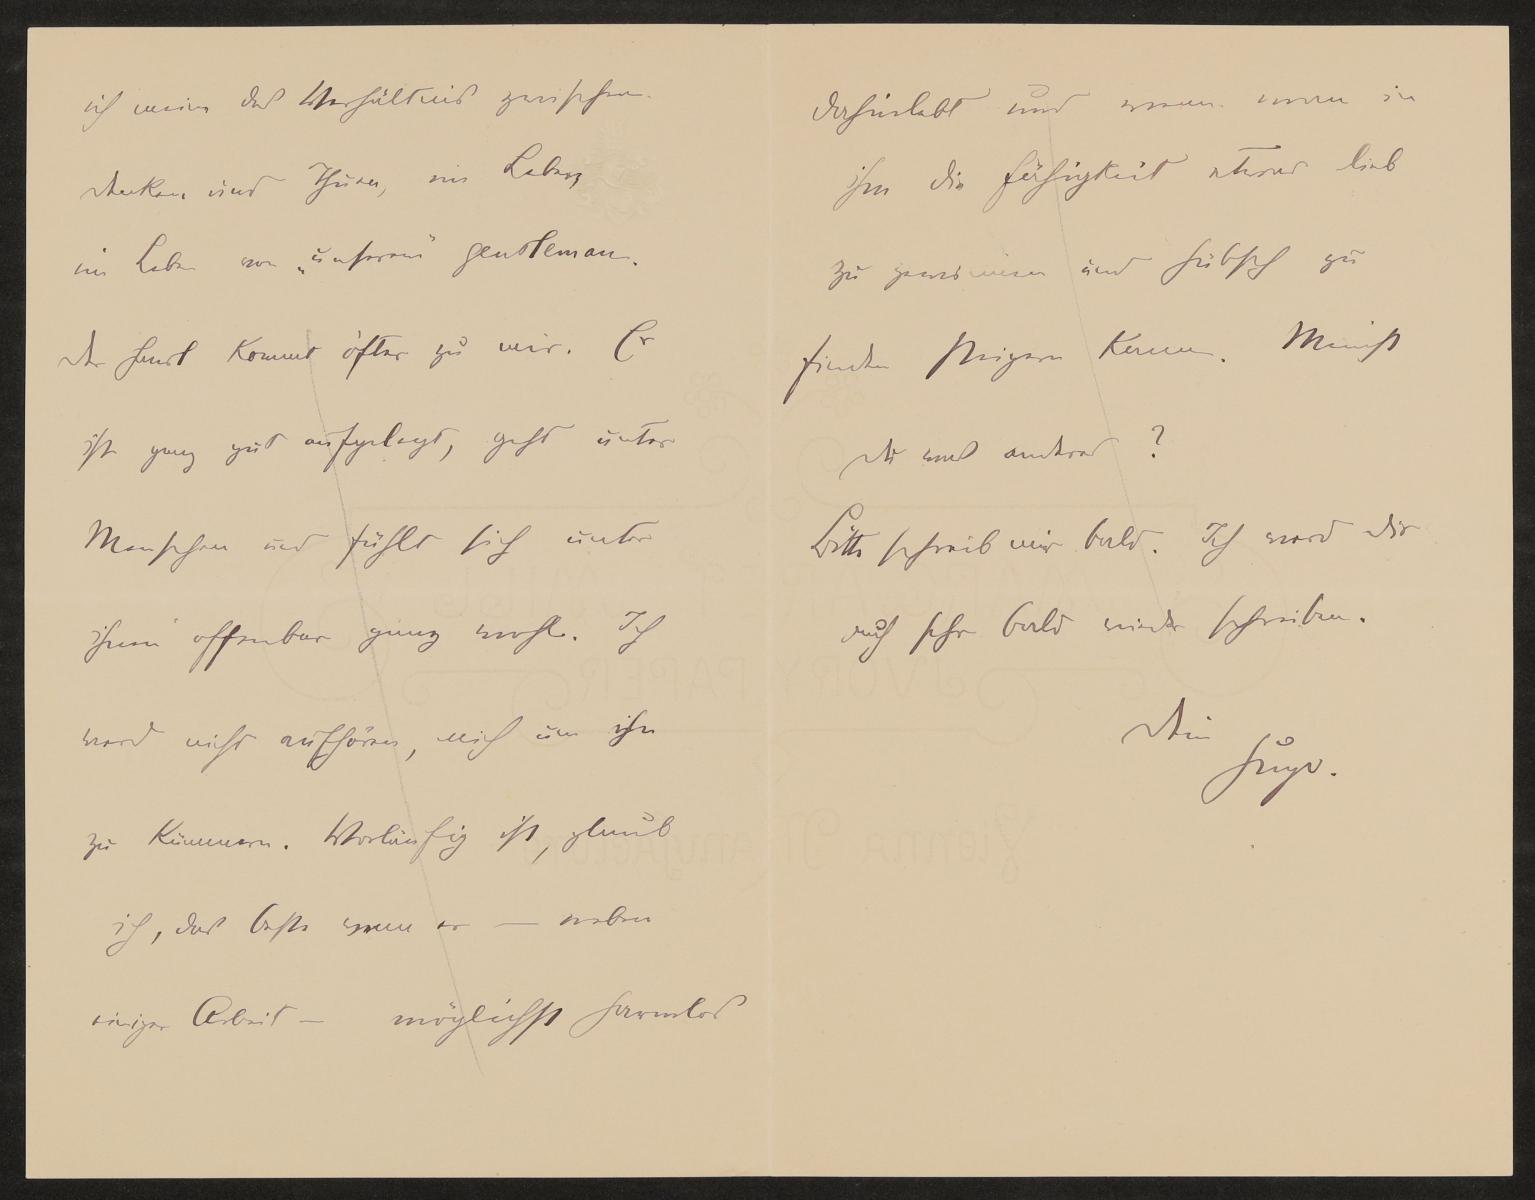 ich meine das Verhältnis zwischen
denken und Thuen, im Leben,
im Leben von „unserem“ gentleman.
Der Hansl kommt öfter zu mir. Er
ist ganz gut aufgelegt, geht unter
Menschen und fühlt sich unter
ihnen offenbar ganz wohl. Ich
werd nicht aufhören, mich um ihn
zu kümmern. Vorläufig ist, glaub
ich, das beste wenn er — neben
einiger Arbeit — möglichst harmlos
dahinlebt und wenn man in
ihm die Fähigkeit etwas lieb
zu gewinnen und hübsch zu
finden steigern kann. Meinst
du was anderes?
Bitte schreib mir bald. Ich werd dir
auch sehr bald wieder schreiben.
Dein
Hugo.
MARGARET MILLS
IVORY PAPER
Vienna Manufacture